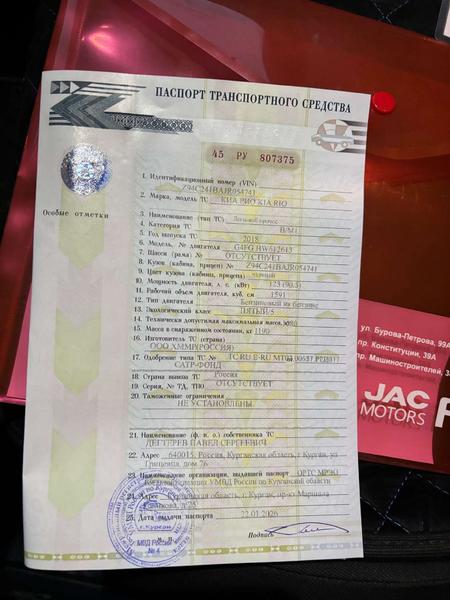 ПАСПОРТ ТРАНСПОРТНОГО СРЕДСТВА
45 РУ 807375
Особые отметки
1. Идентификационный номер (VIN)
Z94C241BAJR054741
2. Марка, модель ТС КИА РИО KIA RIO
3. Наименование (тип ТС) Легковой прочее
4. Категория ТС B/M1
5. Год выпуска ТС 2018
6. Модель, № двигателя G4FG
7. Шасси (рама) № ОТСУТСТВУЕТ
8. Кузов (кабина, прицеп) № Z94C241BAJR054741
9. Цвет кузова (кабины, прицепа) черный
10. Мощность двигателя, л. с. (кВт) 123 (90.5)
11. Рабочий объем двигателя, куб. см 1591
12. Тип двигателя Бензиновый на бензине
13. Экологический класс ПЯТЫЙ/5
14. Технически допустимая максимальная масса,
15. Масса в снаряженном состоянии, кг 1190
16. Изготовитель ТС (страна)
ООО ХММР(РОССИЯ)
17. Одобрение типа ТС № ТС RU E-RU
САТР-ФОНД
18. Страна вывоза ТС Россия
19. Серия, № ТД, ТПО ОТСУТСТВУЕТ
20. Таможенные ограничения
НЕ УСТАНОВЛЕНЫ
21. Наименование (ф. и. о.) собственника ТС
ДЕГТЯРЕВ ПАВЕЛ СЕРГЕЕВИЧ
22. Адрес 640015, Россия, Курганская область, г Курган, ул
Грицевца, дом 76
23. Наименование организации, выдавшей паспорт
УМВД России по Курганской области
24. Адрес Курганская область, г Курган, пр-кт Маршала
25. Дата выдачи паспорта 22.01.2026
М. П. Подпись
г.Курган
МВД России
№ 4
ул. Бурова-Петрова, 99А
пр. Конституции, 39А
пр. Машиностроителей,
JAC
MOTORS